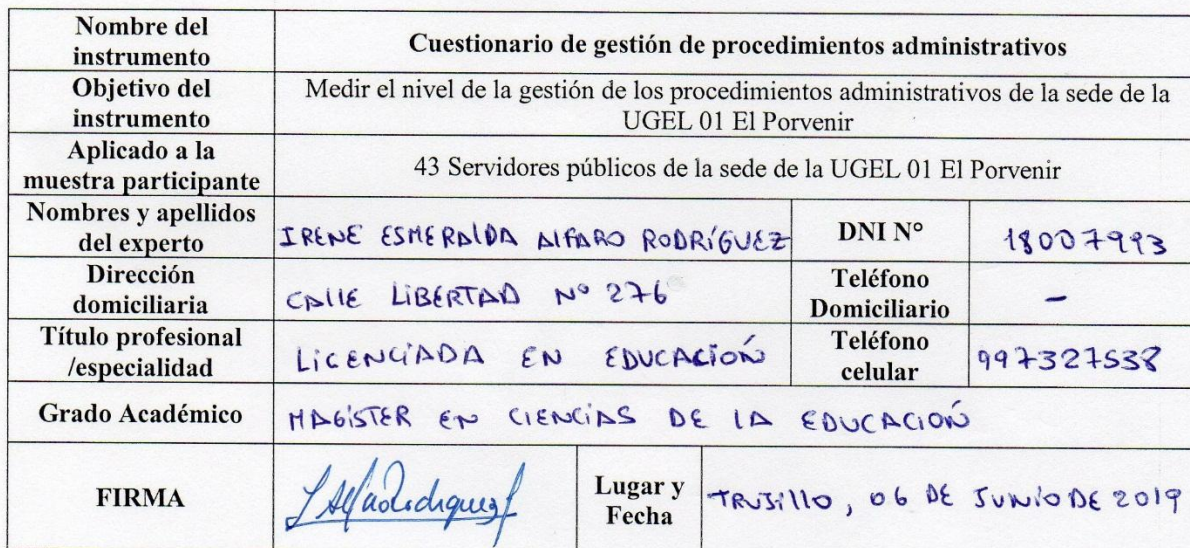 Nombre del
instrumento
Cuestionario de gestión de procedimientos administrativos
Objetivo del
instrumento
Medir el nivel de la gestión de los procedimientos administrativos de la sede de la
UGEL 01 El Porvenir
Aplicado a la
muestra participante
43 Servidores públicos de la sede de la UGEL 01 El Porvenir
Nombres y apellidos
del experto
IRENE ESMERALDA ALFARO RODRÍGUEZ
DNI N°
18007993
Dirección
domiciliaria
CALLE LIBERTAD Nº 276
Teléfono
Domiciliario
-
Título profesional
/especialidad
LICENCIADA EN EDUCACIÓN
Teléfono
celular
997327538
Grado Académico
MAGÍSTER EN CIENCIAS DE LA EDUCACIÓN
FIRMA
Lugar y
Fecha
TRUJILLO, 06 DE JUNIO DE 2019